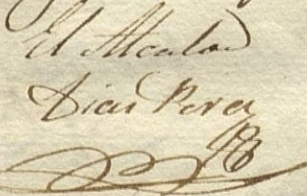 El Alcalde
Dias Perez